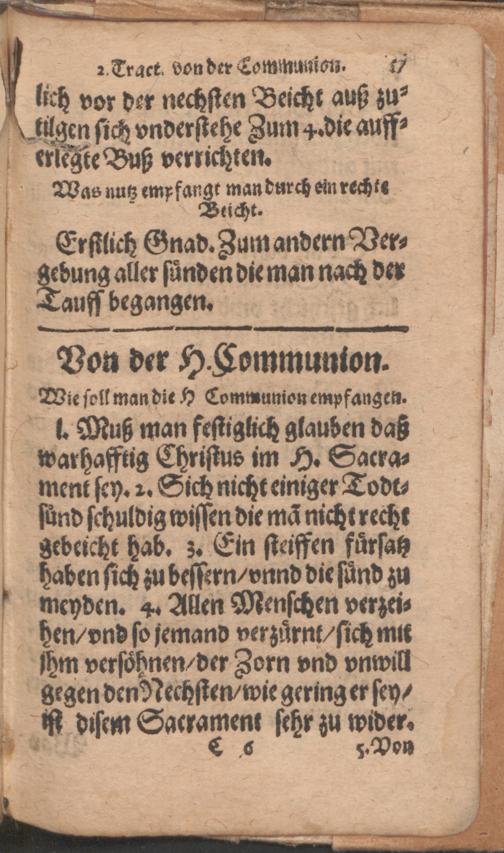 2. Tract. von der Communion.
lich vor der nechsten Beicht auß zu⸗
tilgen sich vnderstehe Zum 4. die auff⸗
erlegte Buß verrichten.
Was nutz empfangt man durch ein rechte
Beicht.
Erstlich Gnad. Zum andern Ver⸗
gebung aller sünden die man nach der
Tauff begangen.
Von der H. Communion.
Wie soll man die H Communion empfangen.
1. Muß man festiglich glauben daß
warhafftig Christus im H. Sacra⸗
ment sey. 2. Sich nicht einiger Todt⸗
sünd schuldig wissen die mã nicht recht
gebeicht hab. 3. Ein steiffen fürsatz
haben sich zu bessern/vnnd die sünd zu
meyden. 4. Allen Menschen verzei⸗
hen/vnd so jemand verzürnt/sich mit
ihm versöhnen/der Zorn vnd vnwill
gegen den Nechsten/wie gering er sey/
ist disem Sacrament sehr zu wider.
C 6 5. Von